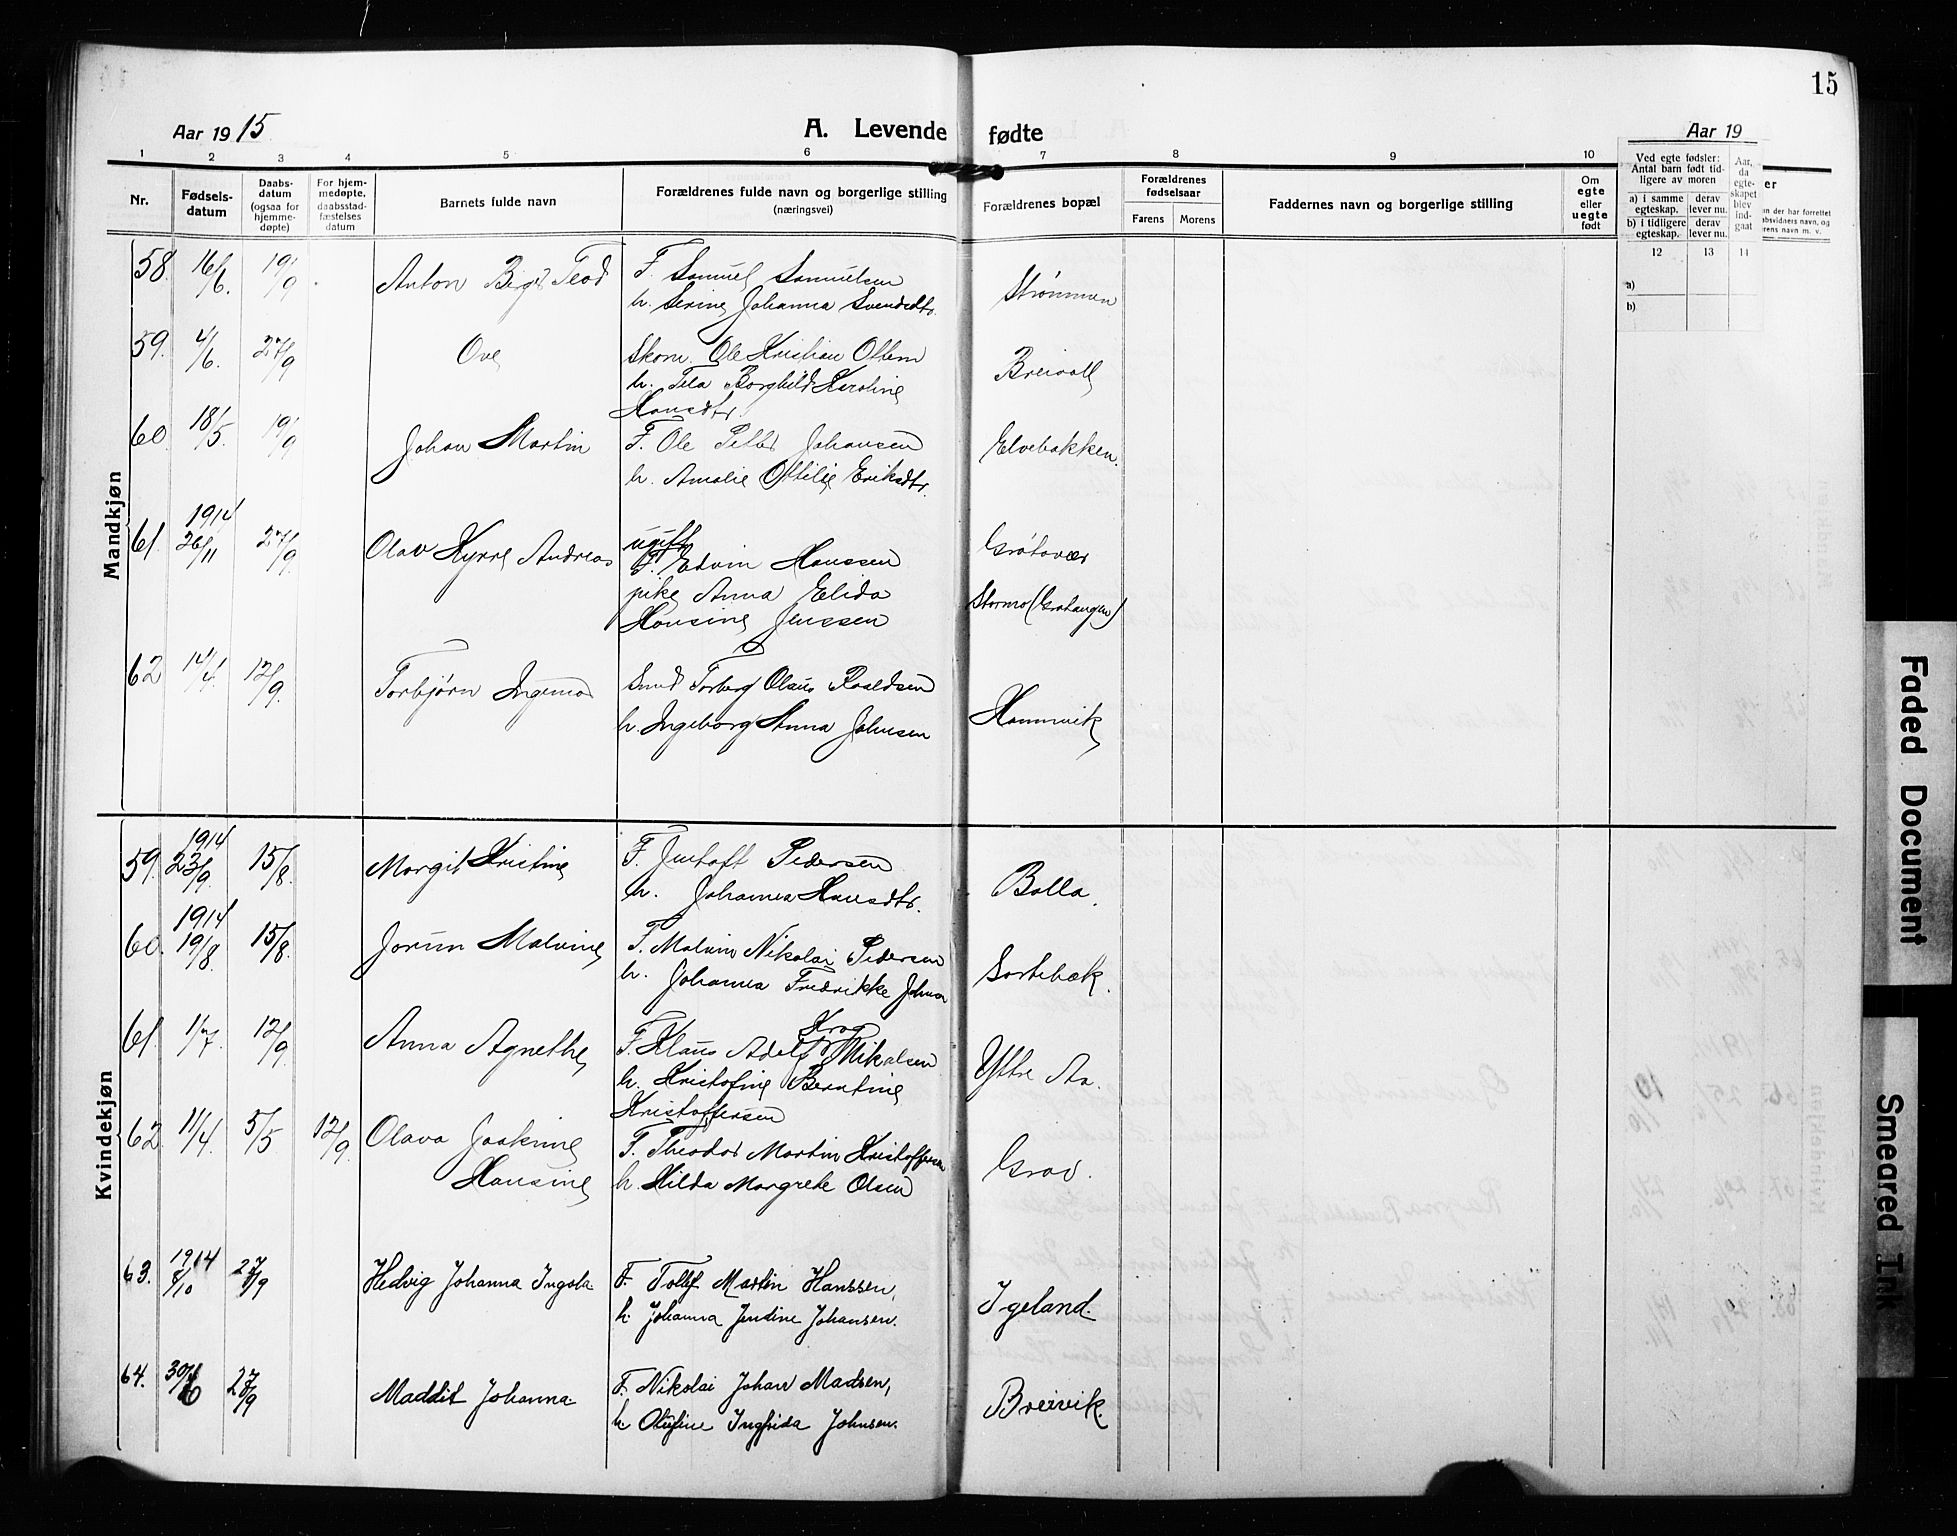 15
Aar 1915.
A. Levende fødte
Aar 19
1 2 3 4 5 6 7 8 9 10
Nr.
Fødsels-
datum
Daabs-
datum
(ogsaa for
hjemme-
døpte)
For hjem-
medøpte,
daabsstad-
fæstelses
datum
Barnets fulde navn
Forældrenes fulde navn og borgerlige stilling
(næringsvei)
Forældrenes bopæl
Forældrenes
fødselsaar
Farens. Morens
Faddernes navn og borgerlige stilling
Om
egte
eller
uegte
født
Ved egte fødsler:
Antal barn født tid-
ligere av moren
a) i samme
egteskap.
derav
lever nu.
b) i tidligere
egteskap.
derav
lever nu.
Aar,
da
egte-
skapet
blev
ind-
gaat
12 13 14
a)
b)
er
Mandkjøn
58. 16/6. 19/9 Anton Teod F. Samuel Samuelsen Strømmen
h. Serine Johanna Svendsdtr.
59. 4/6. 27/9 Ove Skom. Ole Kristian Ottem Breivoll
h. Tea Borghild Karoline
Hansdtr.
60 18/5. 19/9 Johan Martin F. Ole Peter Johansen Elvebakken.
h. Amalie Ottilie Eriksdtr.
61. 1914
26/11 27/9. Olav Kyrre Andreas ugift
F. Edvin Hanssen Grøtavær
pike Anna Elida Stormo (Gratangen)
Hansine Jenssen
62 14/4. 12/9. Torbjørn Ingemar Smed Torberg Olaus Roaldsen Hamnvik
h. Ingeborg Anna Johnsen
Kvindekjøn
59. 1914
23/9. 15/8. Margit Kristine F. Jentoft Pedersen Bolla.
h. Johanna Hansdtr.
60. 1914
19/8. 15/8. Jorun Malvine F. Malvin Nikolai Pedersen Sortebæk.
h. Johanna Fredrikke Johnsen
61. 1/7. 12/9. Anna Agnethe F. Klaus Adolf Krog Mikalsen Yttre Aa.
h. Kristofine Berntine
Kristoffersen
62. 11/4. 5/5 12/9. Olava Joakine F. Theodor Martin Kristoffersen Grov.
Hansine h. Hilda Margrete Olsen
63. 1914
/10 27/9 Hedvig Johanna Ingola F. Tollef Martin Hanssen, Igeland.
h. Johanna Jendine Johansen.
64. 30/6 27/9 Maddit Johanna F. Nikolai Johan Madsen, Breivik.
h. Olufine Ingfrida Johnsen.
Faded Document
Smeared Ink